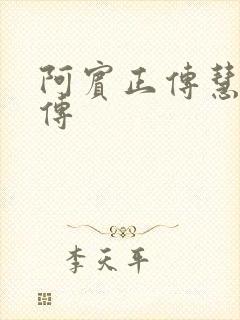 阿賓正傳慧
傳
李天平